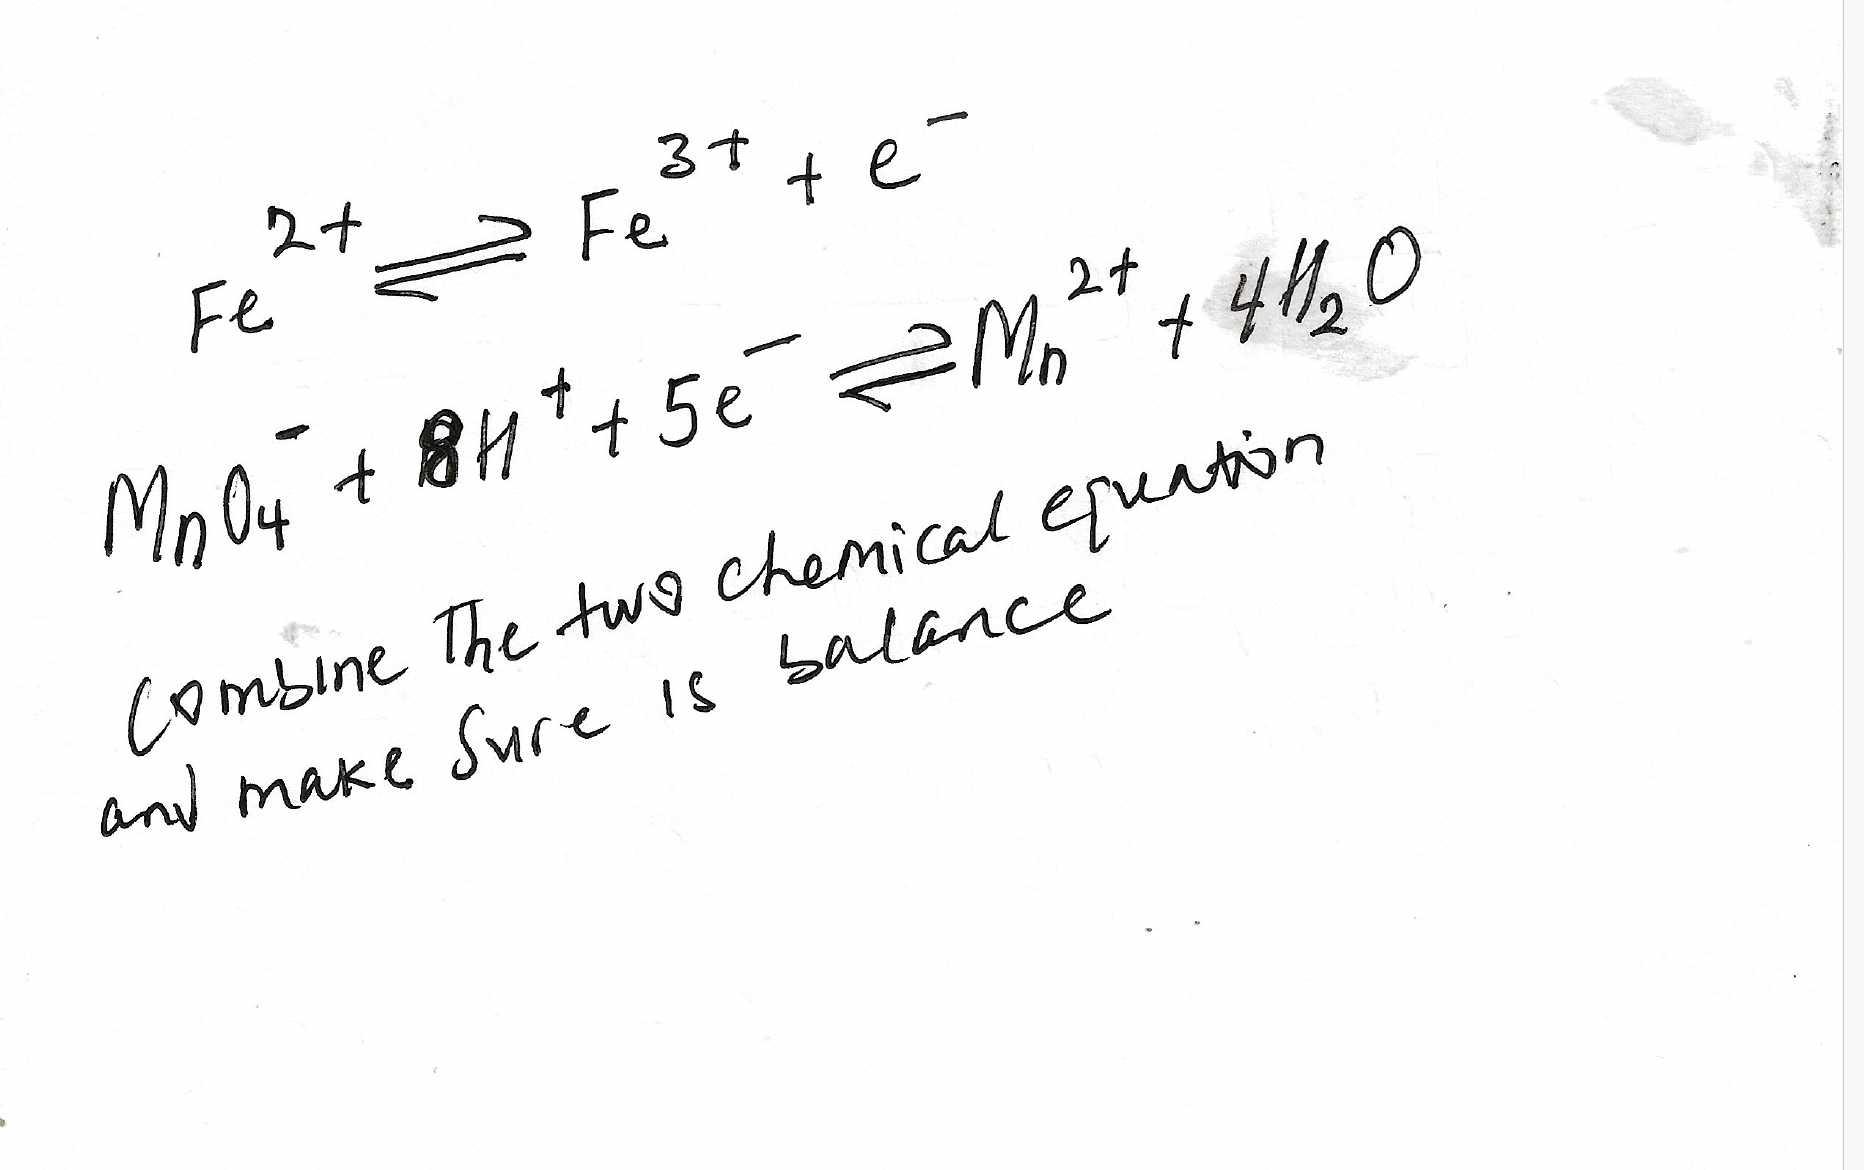 Fe²⁺ ⇌ Fe³⁺ + e⁻
MnO₄⁻ + 8H⁺ + 5e⁻ ⇌ Mn²⁺ + 4H₂O
Combine The two chemical equation
and make Sure is balance